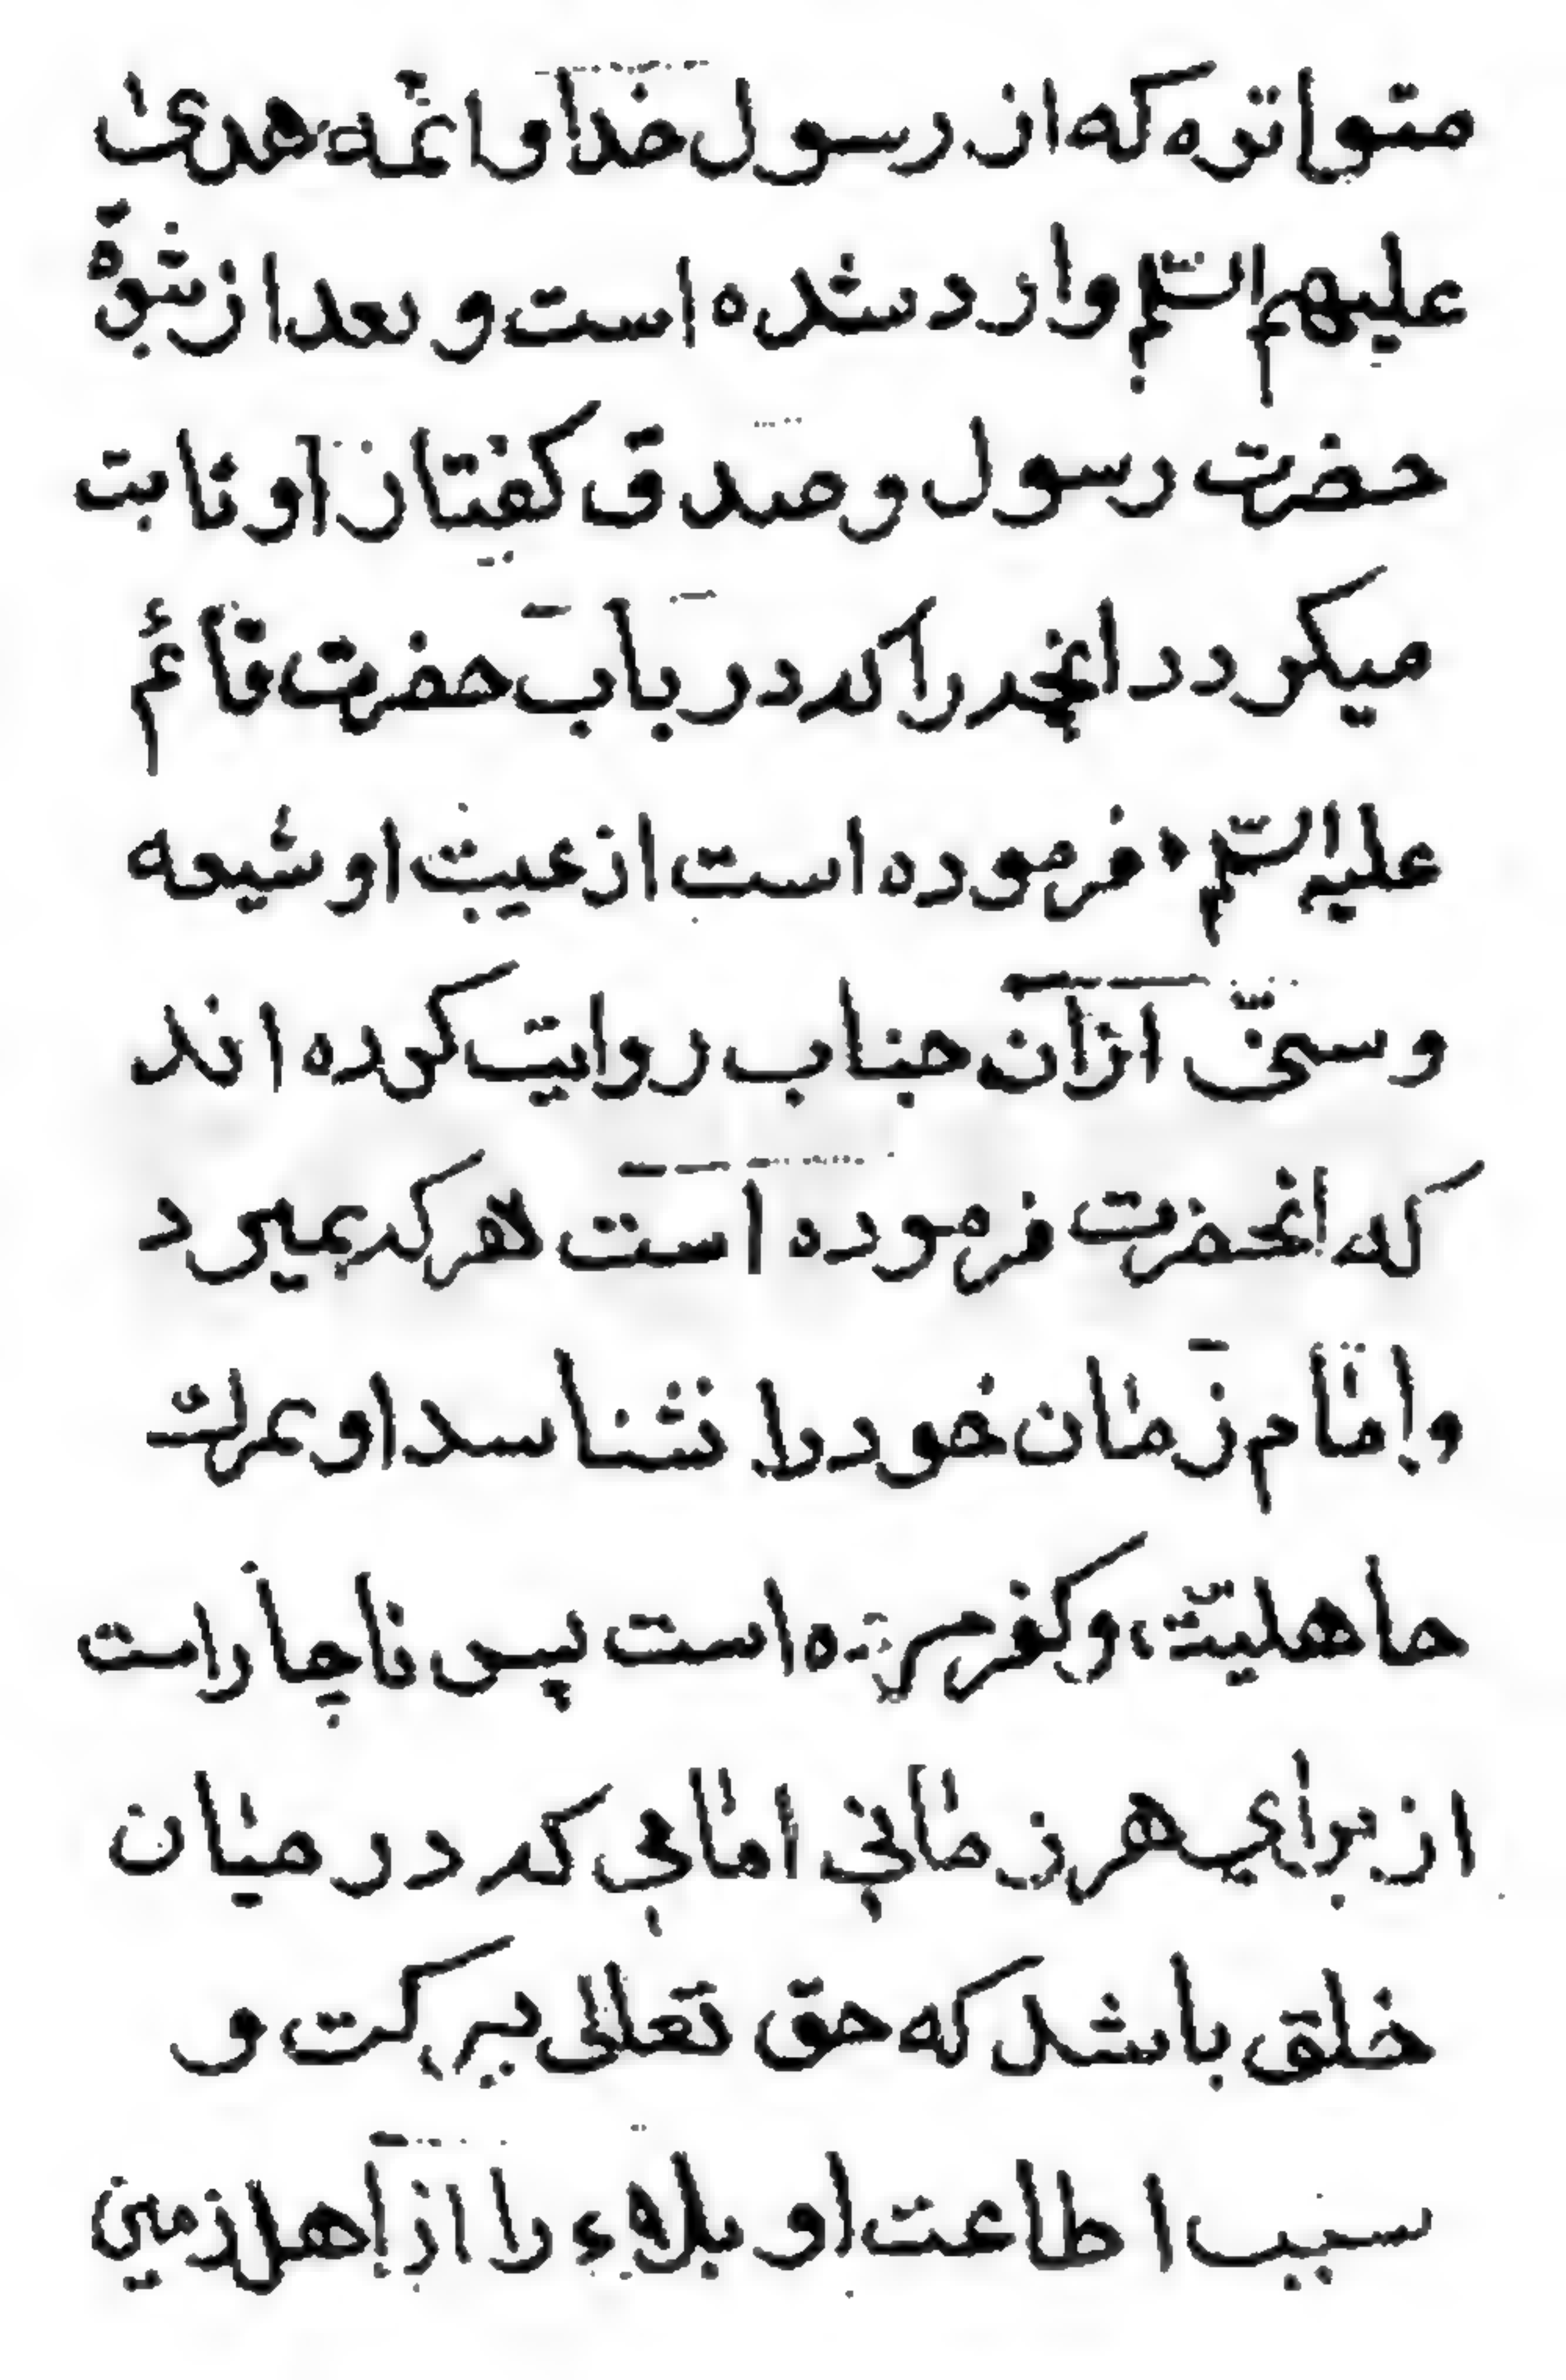 متواتره که از رسول خدا و ائمه هدی
علیهم السّلم وارد شده است و بعد از نبوّة
حضرت رسول و صدق کفتار او ثابت
میکردد انچه را که در باب حضرت قائم
علیه السّلم فرموده است از غیبت او شیعه
و سنیّ از آن جناب روایت کرده اند
که انحضرت فرموده است هر که بمیرد
و امام زمان خود را نشناسد او بمرک
جاهلیّت و کفر مرده است پس ناچار است
از برای هر زمانی امامی که در میان
خلق باشد که حق تعالی ببرکت و
سبب اطاعت او بلاء را از اهل زمین